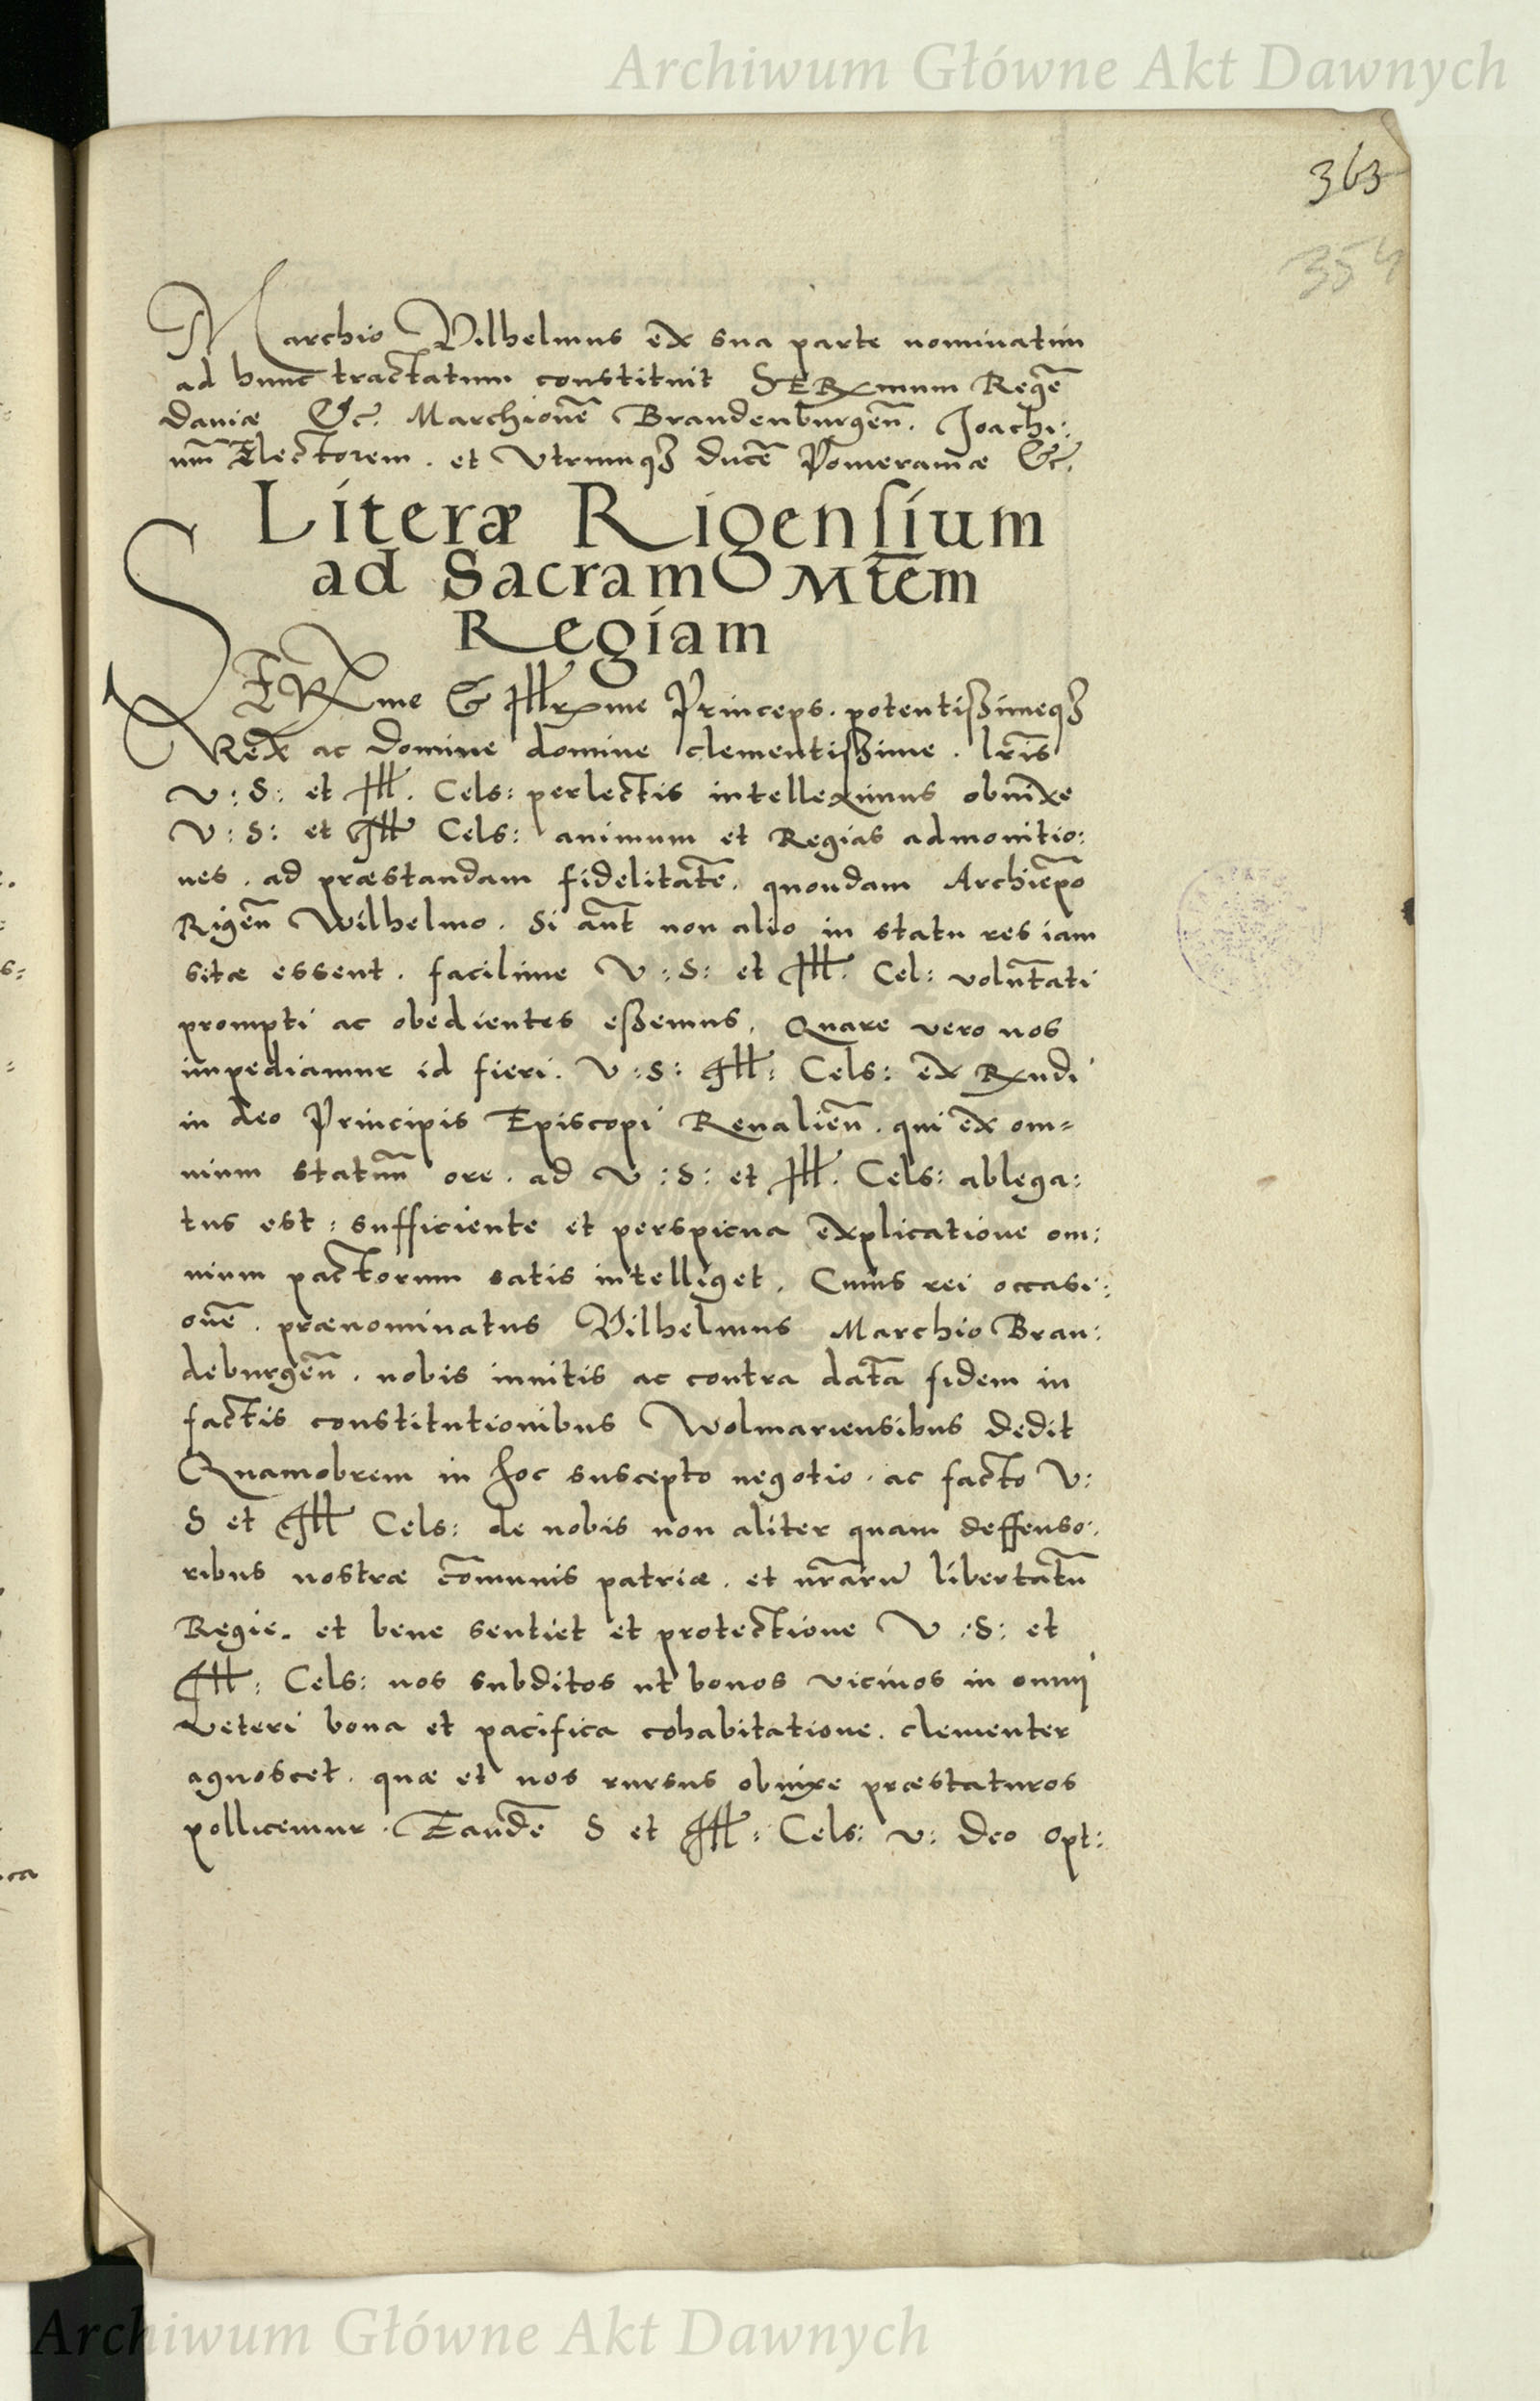 Archiwum Główne Akt Dawnych
363
354
Marchio Vilhelmus ex sua parte nominatim
ad hunc tractatum constituit SERmum Regē
Daniæ &c. Marchionē Brandenburgeñ. Joachi:
mū Electorem. et Vtrumqȝ ducē Pomeraniæ &c.
Literæ Rigensium
ad Sacram Mtēm
Regiam
SERme & Illrme Princeps. potentissimeqȝ
Rex ac Domine domine clementissime. lr̄is
V: S: et Ill. Cels: perlectis intelleximus obnixe
V: S: et Ill Cels: animum et Regias admonitio:
nes. ad præstandam fidelitatē. quondam Archiēpo
Rigeñ Wilhelmo. Si aūt non alio in statu res iam
sitæ essent. facilime V: S: et Ill. Cel: volūtati
prompti ac obedientes essemus. Quare vero nos
impediamur id fieri. V: S: Ill: Cels: ex Rndi
in deo Principis Episcopi Reualieñ. qui ex om=
nium statuū ore. ad V: S: et Ill. Cels: ablega:
tus est: sufficiente et perspicua explicatione om:
nium pactorum satis intelliget. Cuius rei occasi:
onē. prænominatus Vilhelmus Marchio Bran:
deburgeñ. nobis inuitis ac contra datā fidem in
factis constitutionibus Wolmariensibus dedit
Quamobrem in hoc suscepto negotio. ac facto V:
S et Ill Cels: de nobis non aliter quam deffenso:
ribus nostræ cōmunis patriæ. et nr̄arū libertatū
Regie. et bene sentiet et protectione V: S: et
Ill: Cels: nos subditos ut bonos vicinos in omni
veteri bona et pacifica cohabitatione. clementer
agnoscet. quæ et nos rursus obnixe præstaturos
pollicemur. Eandē S et Ill: Cels: V: Deo Opt:
Archiwum Główne Akt Dawnych